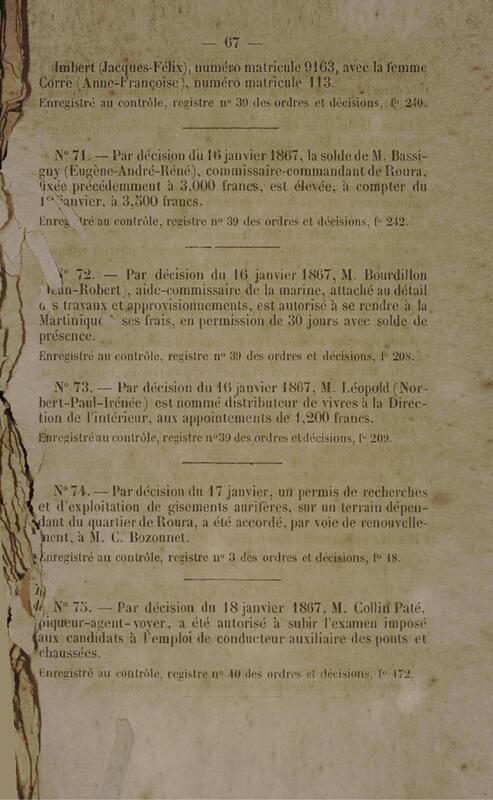 — 67 —
Imbert (Jacques-Félix), numéro matricule 9163, avec la femme
Corre (Anne-Françoise), numéro matricule 113.
Enregistré au contrôle, registre nº 39 des ordres et décisions, fº 240.
Nº 71. — Par décision du 16 janvier 1867, la solde de M. Bassi-
gny (Eugène-André-Réné), commissaire-commandant de Roura,
fixée précédemment à 3,000 francs, est élevée, à compter du
1er janvier, à 3,500 francs.
Enreg tré au contrôle, registre nº 39 des ordres et décisions, fº 242.
Nº 72. — Par décision du 16 janvier 1867, M. Bourdillon
Jean-Robert), aide-commissaire de la marine, attaché au détail
s travaux et approvisionnements, est autorisé à se rendre à la
Martinique ses frais, en permission de 30 jours avec solde de
présence.
Enregistré au contrôle, registre nº 39 des ordres et décisions, fº 208.
Nº 73. — Par décision du 16 janvier 1867, M. Léopold (Nor-
bert-Paul-Irénée) est nommé distributeur de vivres à la Direc-
tion de l'intérieur, aux appointements de 1,200 francs.
Enregistré au contrôle, registre nº 39 des ordres et décisions, fº 209.
Nº 74. — Par décision du 17 janvier, un permis de recherches
et d'exploitation de gisements aurifères, sur un terrain dépen-
dant du quartier de Roura, a été accordé, par voie de renouvelle-
ment, à M. C. Bozonnet.
Enregistré au contrôle, registre nº 3 des ordres et décisions, fº 18.
Nº 75. — Par décision du 18 janvier 1867, M. Collin Paté,
piqueur-agent-voyer, a été autorisé à subir l'examen imposé
aux candidats à l'emploi de conducteur auxiliaire des ponts et
chaussées.
Enregistré au contrôle, registre nº 40 des ordres et décisions, fº 172.